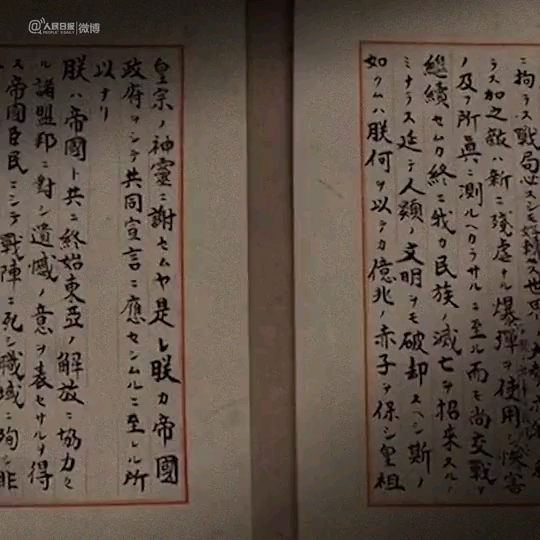 @人民日报
PEOPLE'S DAILY
微博
ニ拘ラス戰局必スシモ好轉セス世界
ラス加之敵ハ新ニ殘虐ナル爆彈ヲ使用シ慘害
ノ及フ所眞ニ測ルヘカラサルニ至ル而モ尚交戰ヲ
繼續セムカ終ニ我カ民族ノ滅亡ヲ招來スルノ
ミナラス延テ人類ノ文明ヲモ破却スヘシ斯ノ
如クムハ朕何ヲ以テカ億兆ノ赤子ヲ保シ皇祖
皇宗ノ神靈ニ謝セムヤ是レ朕カ帝國
政府ヲシテ共同宣言ニ應セシムルニ至レル所
以ナリ
朕ハ帝國ト共ニ終始東亞ノ解放ニ協力セ
ル諸盟邦ニ對シ遺憾ノ意ヲ表セサルヲ得
ス帝國臣民ニシテ戰陣ニ死シ職域ニ殉シ非